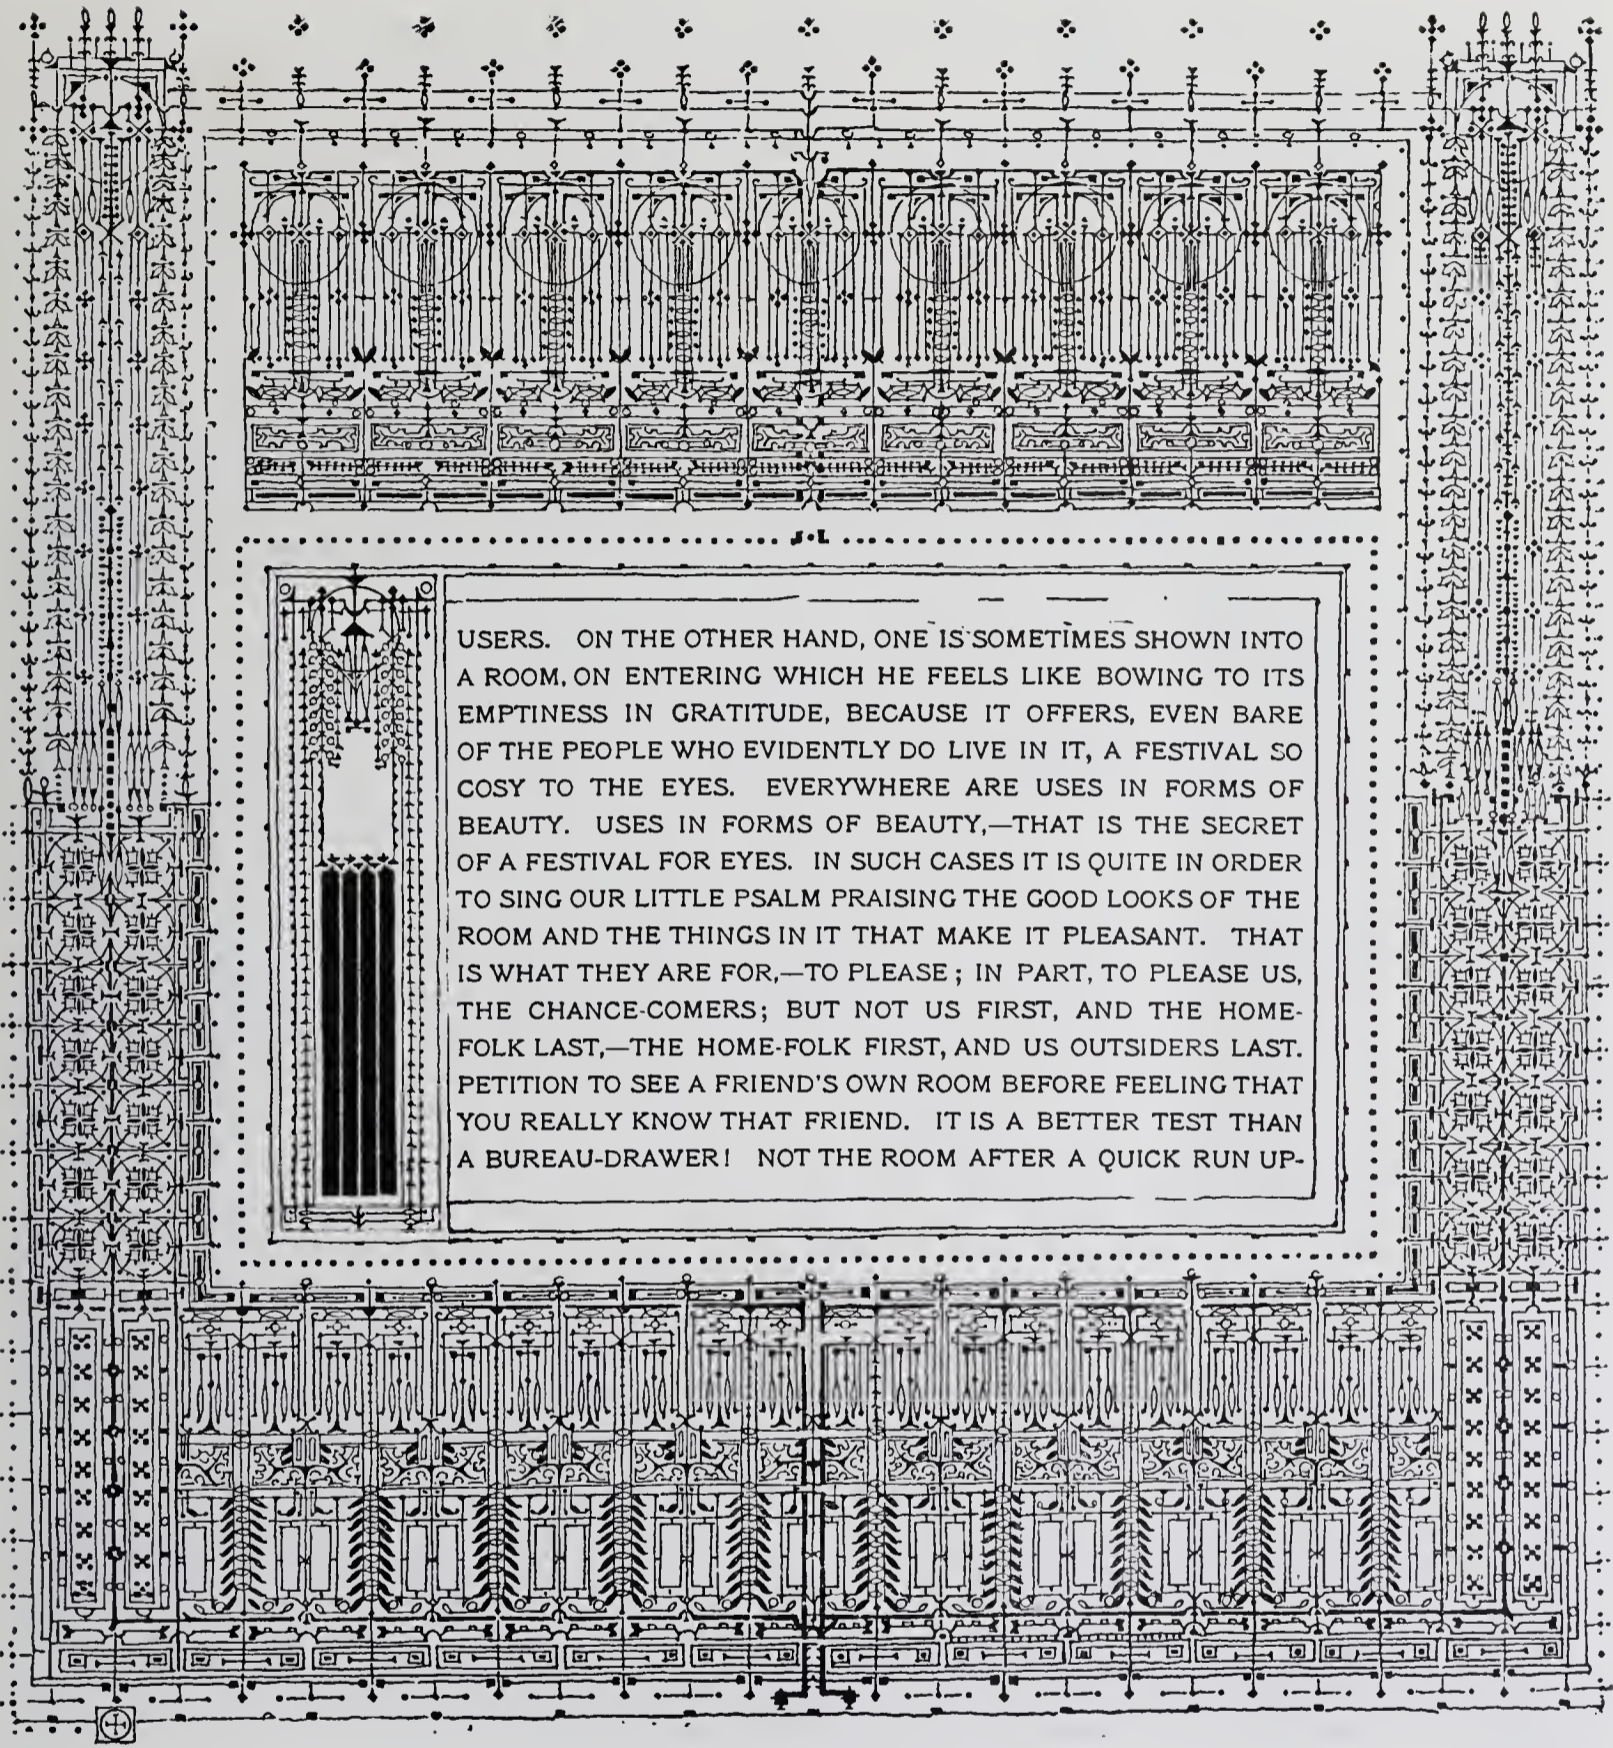 USERS. ON THE OTHER HAND, ONE IS SOMETIMES SHOWN INTO
A ROOM, ON ENTERING WHICH HE FEELS LIKE BOWING TO ITS
EMPTINESS IN GRATITUDE, BECAUSE IT OFFERS, EVEN BARE
OF THE PEOPLE WHO EVIDENTLY DO LIVE IN IT, A FESTIVAL SO
COSY TO THE EYES. EVERYWHERE ARE USES IN FORMS OF
BEAUTY. USES IN FORMS OF BEAUTY,—THAT IS THE SECRET
OF A FESTIVAL FOR EYES. IN SUCH CASES IT IS QUITE IN ORDER
TO SING OUR LITTLE PSALM PRAISING THE GOOD LOOKS OF THE
ROOM AND THE THINGS IN IT THAT MAKE IT PLEASANT. THAT
IS WHAT THEY ARE FOR,—TO PLEASE; IN PART, TO PLEASE US,
THE CHANCE-COMERS; BUT NOT US FIRST, AND THE HOME-
FOLK LAST,—THE HOME-FOLK FIRST, AND US OUTSIDERS LAST.
PETITION TO SEE A FRIEND'S OWN ROOM BEFORE FEELING THAT
YOU REALLY KNOW THAT FRIEND. IT IS A BETTER TEST THAN
A BUREAU-DRAWER! NOT THE ROOM AFTER A QUICK RUN UP-